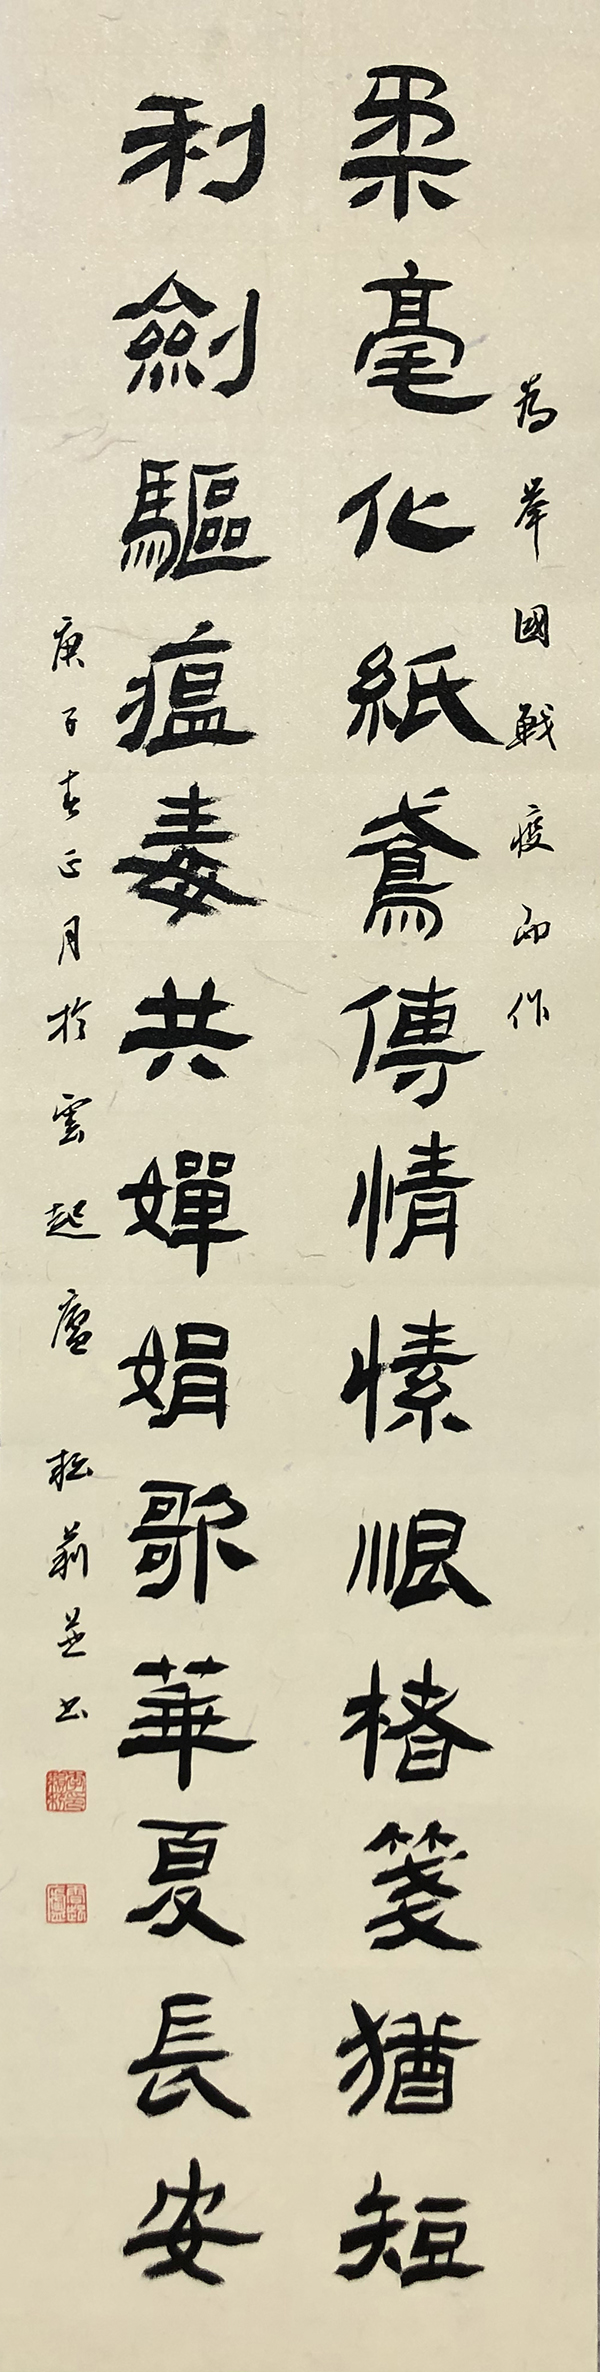 為舉國戰疫而作
柔毫化紙鳶傳情愫恨楮箋猶短
利劍驅瘟毒共嬋娟歌華夏長安
庚子春正月於雲起廬 松莉並書